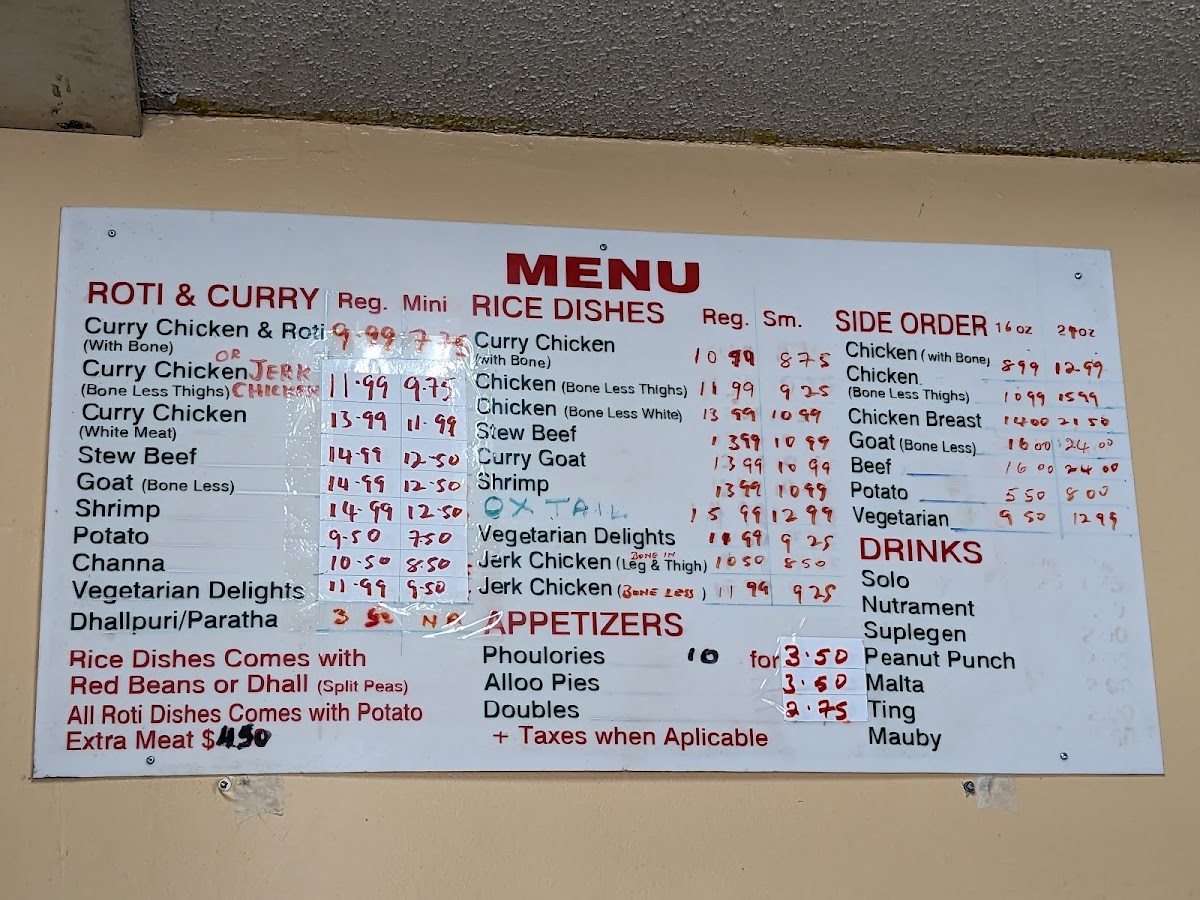 MENU
ROTI & CURRY Reg. Mini
Curry Chicken & Roti 9.99 7.75
(With Bone)
Curry Chicken OR JERK
(Bone Less Thighs) CHICKEN 11.99 9.75
Curry Chicken 13.99 11.99
(White Meat)
Stew Beef 14.99 12.50
Goat (Bone Less) 14.99 12.50
Shrimp 14.99 12.50
Potato 9.50 7.50
Channa 10.50 8.50
Vegetarian Delights 11.99 9.50
Dhallpuri/Paratha 3 50 NA
Rice Dishes Comes with
Red Beans or Dhall (Split Peas)
All Roti Dishes Comes with Potato
Extra Meat $4.50
RICE DISHES Reg. Sm.
Curry Chicken 10 99 8 75
(with Bone)
Chicken (Bone Less Thighs) 11 99 9 25
Chicken (Bone Less White) 13 99 10 99
Stew Beef 13 99 10 99
Curry Goat 13 99 10 99
Shrimp 13 99 10 99
OX TAIL 15 99 12 99
Vegetarian Delights 11 99 9 25
Jerk Chicken (BONE IN Leg & Thigh) 10 50 8 50
Jerk Chicken (BONE LESS) 11 99 9 25
APPETIZERS
Phoulories 10 for 3.50
Alloo Pies 3.50
Doubles 2.75
+ Taxes when Aplicable
SIDE ORDER 16 oz 24 oz
Chicken (with Bone) 8 99 12.99
Chicken
(Bone Less Thighs) 10 99 15 99
Chicken Breast 14 00 21 50
Goat (Bone Less) 16 00 24 00
Beef 16 00 24 00
Potato 5 50 8 00
Vegetarian 9 50 12 99
DRINKS
Solo
Nutrament
Suplegen
Peanut Punch
Malta
Ting
Mauby